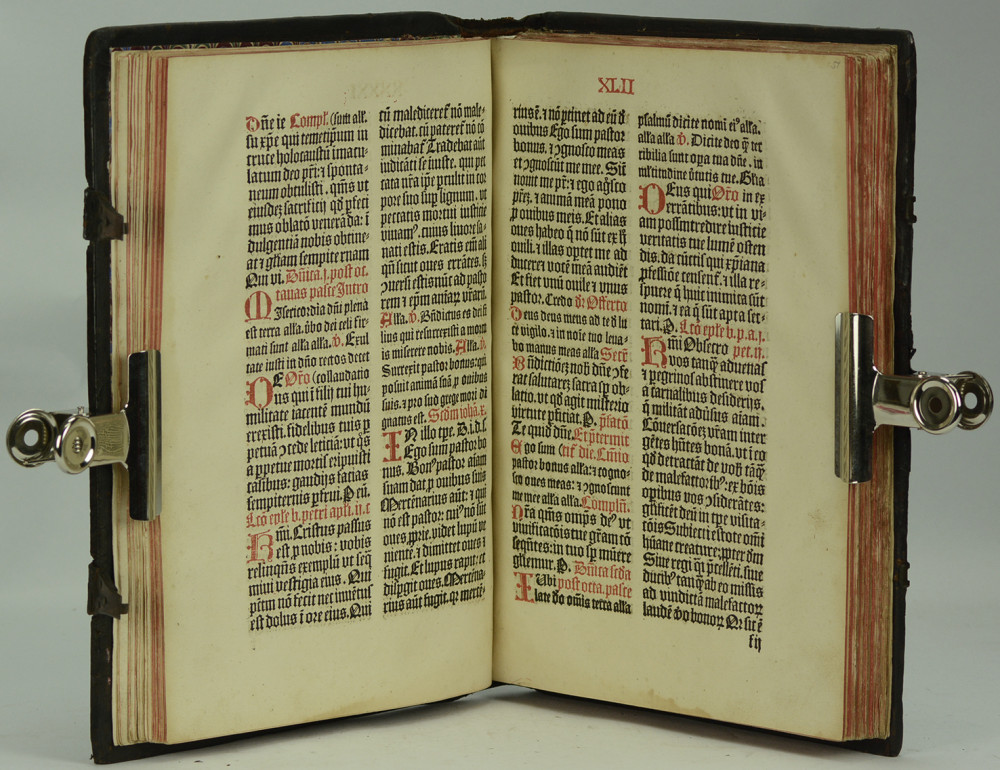 Dñe ie Compł. (Sum all.
su xp̃e qui temetip̃um in
cruce holocaustũ inmacu⸗
latum deo pr̃i: ⁊ sponta⸗
neum obtulisti. qm̃s vt
eiusdẽ sacrificij qđ pſeci
mus oblatō venerãda: ĩ
dulgentiã nobis obtine⸗
at ⁊ gl̃iam sempiternam
Qui vi. Dñica.j. post oc.
tauas pasce Intro
Misericordia dñi plena
est terra alľa. v̓bo dei celi fir⸗
mati sunt alľa alľa. v̓. Exul
tate iusti in dño rectos decet
DEus Oro (collaudatio
qui ĩ filij tui hu
militate iacentẽ mundũ
erexisti. fidelibus tuis ꝑ
petuã ↄcede leticiã: vt qs̃
a ꝑpetue mortis eripuisti
casibus: gaudijs facias
sempiternis ꝑfrui. P eũ.
Lcõ epľe b. petri apľi. ij. c
Frm̃. Cristus passus
est ꝓ nobis: vobis
relinq̃ns exemplũ vt seq̃
mini vestigia eius. Qui
pctm̃ nõ fecit nec inuẽtus
est dolus ĩ ore eius. Qui
cũ malediceret̃ nõ male⸗
dicebat. cũ pateret̃ nõ cõ
minabat̃ Tradebat aũt
iudicãti se iniuste. qui pec
cata nr̃a ip̃e ꝑtulit in cor
pore suo sup̃ lignum. vt
peccatis mortui iusticie
viuam9. cuius liuore sa⸗
nati estis. Eratis em̃ ali
qñ sicut oues errãtes. sʒ
ↄuersi estis nũc ad pasto
rem ⁊ ep̃m aniaꝝ vr̃aꝝ.
Alľa. v̓. Bñdictus es dei fi
lius qui resurrexisti a mortu
is miserere nobis. Alľa. v̓.
Surexit pastor bonus: qui
posuit animã suã ꝓ ouibus
suis. ⁊ ꝓ suo grege mori di
gnatus est. Scd̃m ioħã. x.
IN illo tp̃e. D. i. d. s.
Ego sum pastor bo
nus. Bon9 pastor aiam
suam dat ꝓ ouibus suis
Mercenarius aũt: ⁊ qui
nõ est pastor: cui9 nõ sũt
oues ꝓprie. videt lupũ ve
nientẽ: ⁊ dimittet oues ⁊
fugit. Et lupus rapit: et
disꝑgit oues. Mercena⸗
rius aũt fugit. qꝛ merce⸗
XLII
rius ẽ. ⁊ nõ ꝑtinet ad eũ đ
ouibus Ego sum pastor
bonus. ⁊ ↄgnosco meas
et ↄgnoscũt me mee. Sic̃
nouit me pr̃: ⁊ ego agn̓sco
prẽʒ. ⁊ animã meã pono
ꝓ ouibus meis. Et alias
oues habeo q̃ nõ sũt ex ħ
ouili. ⁊ illas optet me ad
ducere: ⁊ vocẽ meã audiẽt
Et fiet vnũ ouile ⁊ vnus
pastor. Credo d̓: Offerto
Deus deus meus ad te đ lu
ce vigilo. ⁊ in noĩe tuo leua⸗
bo manus meas alľa Secr̃.
Bñdictiõeʒ nob̓ dñe ↄfe
rat salutareʒ sacra sꝑ ob⸗
latio. vt qđ agit misterio
virtute ꝑficiat. P. p̃facõ
Te quid dñe. Et ꝑtermit
Ego sum (tit̃ die. Cõmio
pastor bonus alľa: ⁊ cogno⸗
sco oues meas: ⁊ ↄgnoscunt
me mee alľa alľa. Compľm̃.
Pr̃a qm̃s omp̃s de9 vt
viuificatõis tue gr̃am cõ
seq̃ntes: in tuo sꝑ mũere
gl̃iemur. P. Dñica scďa
IUbi post octa. pasce
late đo oĩnis terra alľa
psalmũ dicite nomi ei9 alľa.
alľa alľa v̓. Dicite deo q̃ ter
ribilia sunt opa tua dñe. in
multitudine v̓tutis tue. Gľia
DEus qui Oro in ex
errãtibus: vt in vi⸗
am possint redire iusticie
veritatis tue lumẽ osten
dis. da cũctis qui xp̃iana
ꝓfessiõe censent̃. ⁊ illa re⸗
spuere q̃ huic inimica sũt
nomi. ⁊ ea q̃ sũt apta sec⸗
tari. P. Lcõ epľe b. p. a. j.
Frm̃i Obsecro pet. ij.
vos tanq̃ aduenas
⁊ peregrinos abstinere vos
a carnalibus desiderijs.
q̃ militãt aduſus aiam.
Cõuersacõeʒ vr̃am inter
gẽtes hñtes bonã. vt ĩ eo
qđ detractãt de vob̓ tãq̃
de malefactorib9: ex bõis
opibus vos ↄsiderãtes:
gl̃ificẽt deũ in tꝑe visita⸗
cõis Subiecti estote om̃i
hũane creature: ꝓpter dm̃
Siue regi q̃i ꝓcellẽti. siue
ducib9 tanq̃ ab eo missis
ad vindictã malefactoꝝ
laudẽ v̓o bonoꝝ Qꝛ sic ẽ
f ij